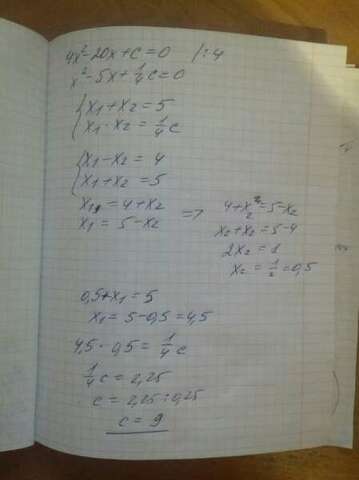 4x²-20x+c=0 /:4
x²-5x+1/4c=0
{x₁+x₂=5
x₁·x₂=1/4c
{x₁-x₂=4
x₁+x₂=5
x₁=4+x₂ => 4+x₂=5-x₂
x₁=5-x₂ x₂+x₂=5-4
2x₂=1
x₂=1/2=0,5
0,5+x₁=5
x₁=5-0,5=4,5
4,5·0,5=1/4c
1/4c=2,25
c=2,25:0,25
c=9